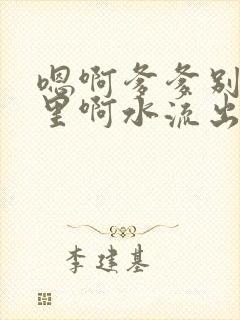 嗯啊爹爹别
里啊水流出
李建基